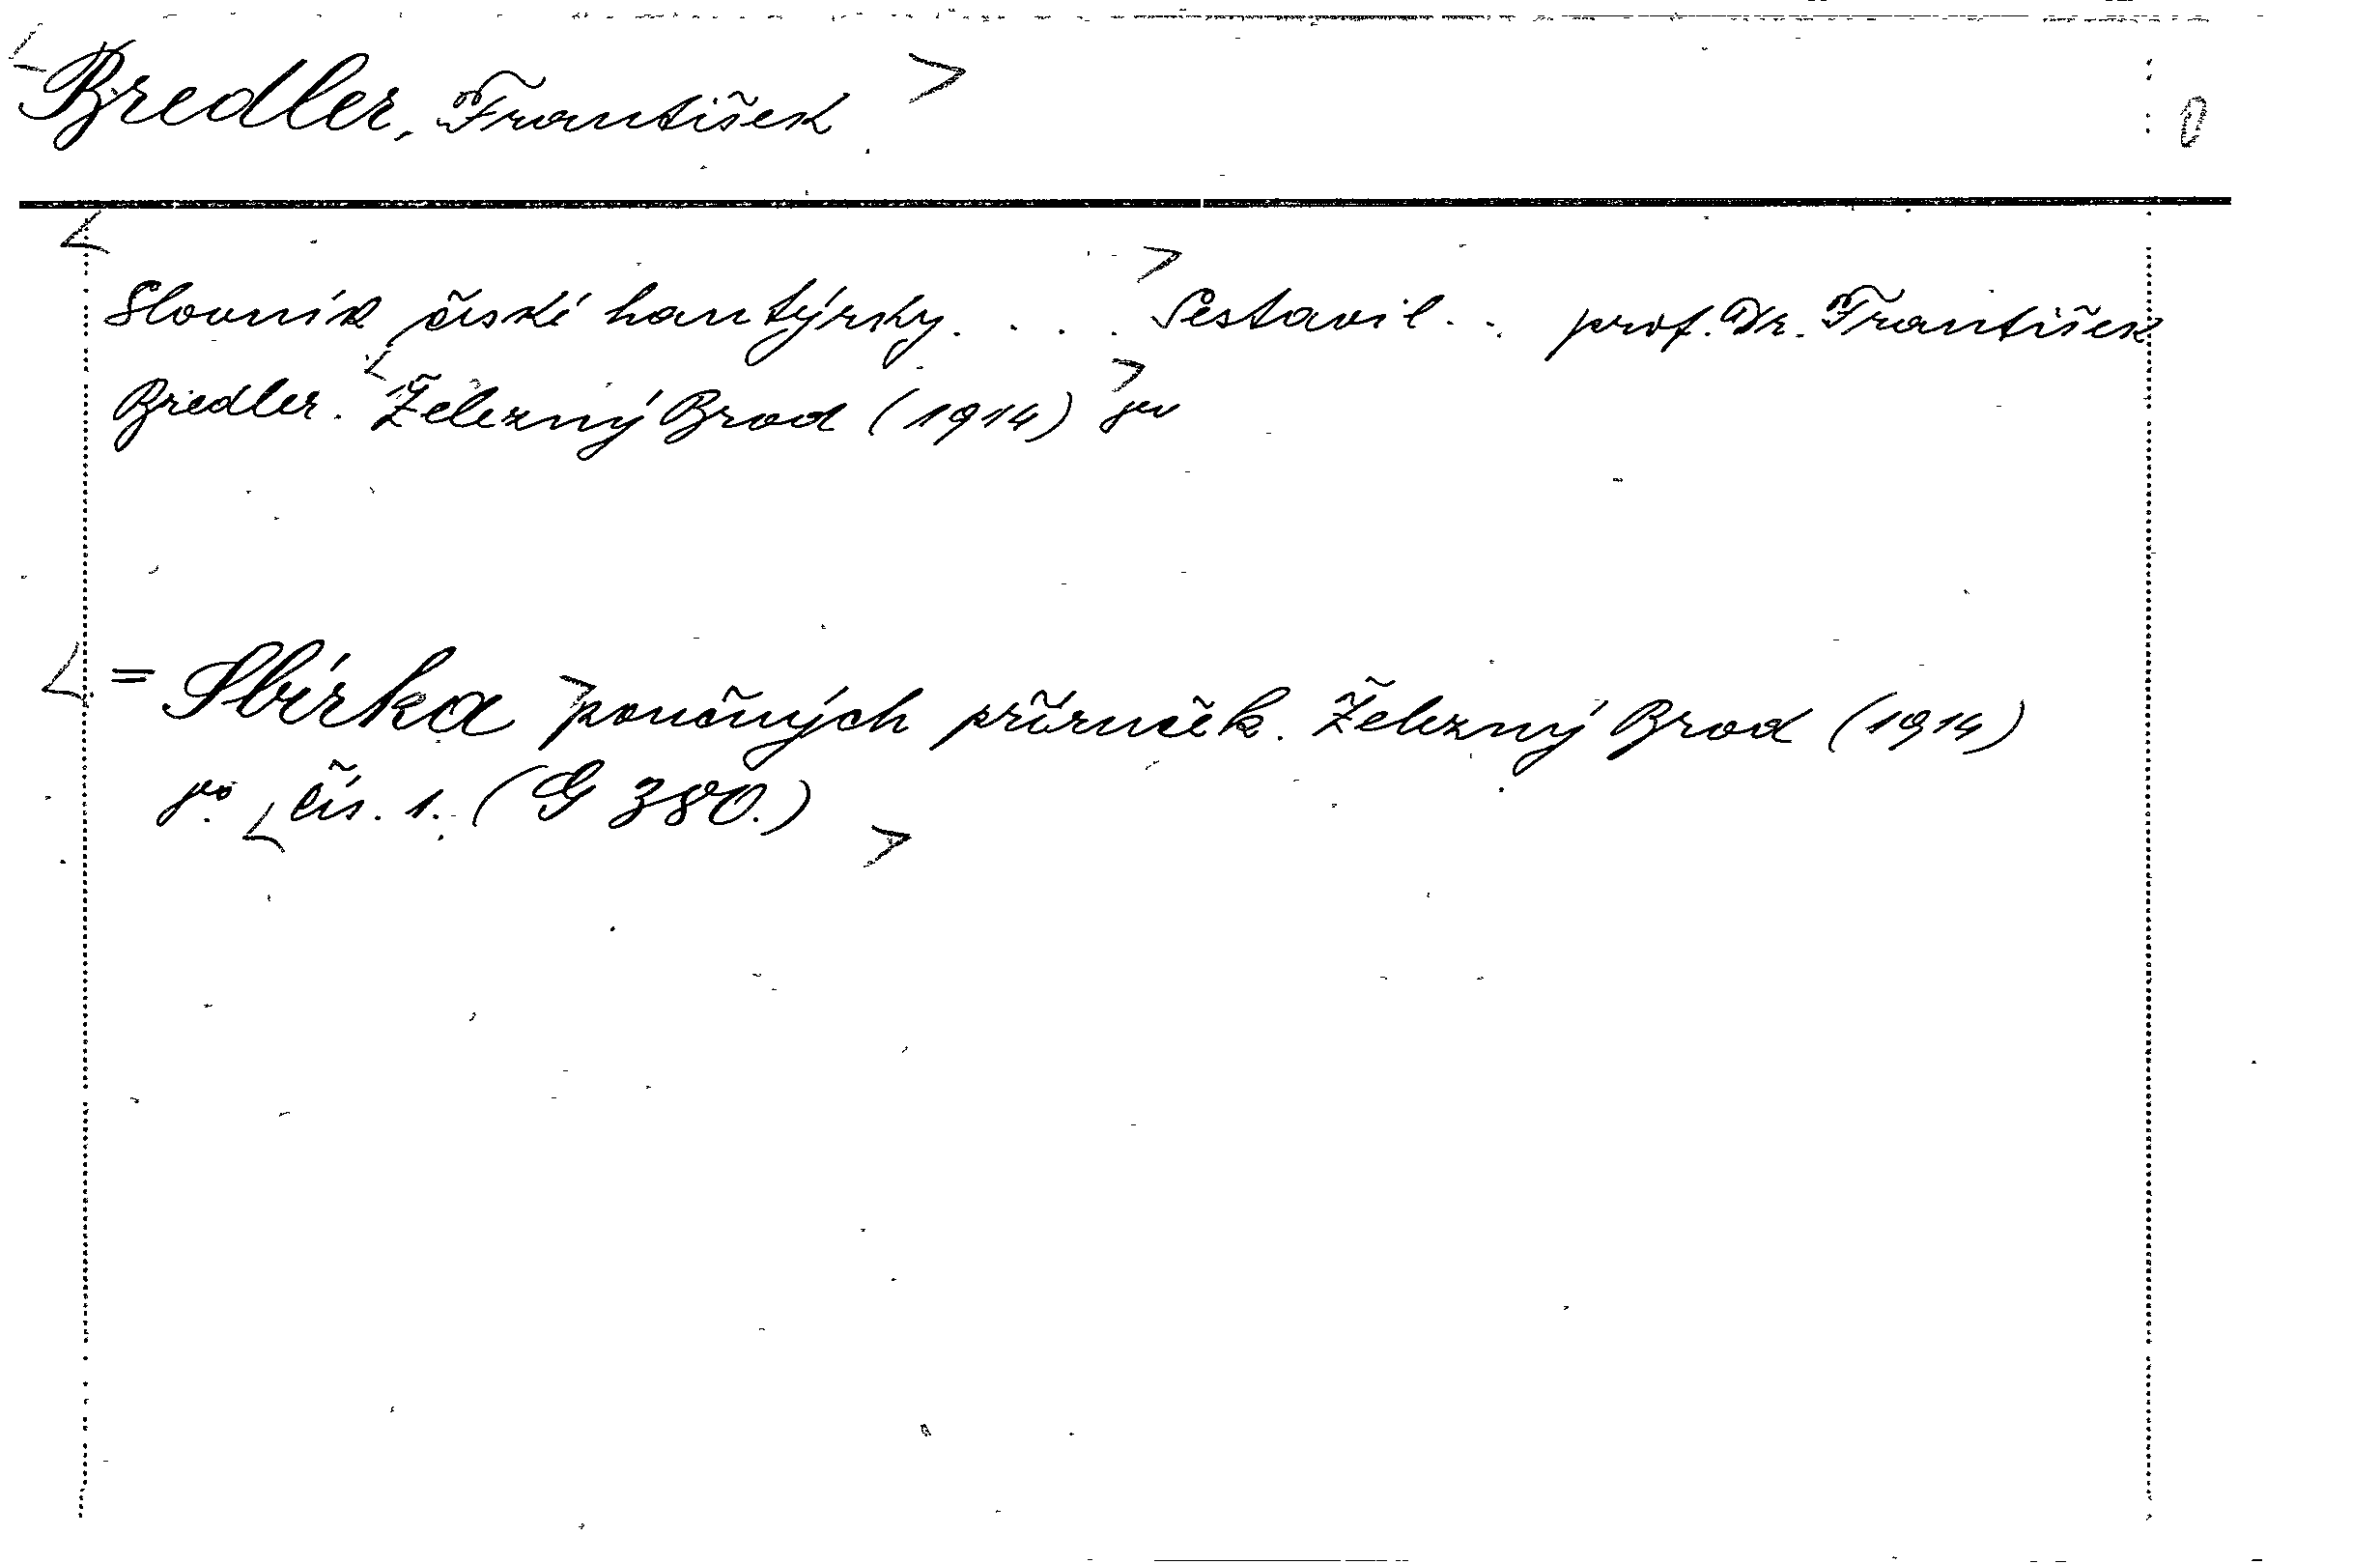 Bredler, František
Slovník české hantýrky. . . . Sestavil . . prof. Dr. František
Bredler. Železný Brod (1914) 8°
= Sbírka poučných příruček. Železný Brod (1914)
8° čís. 1. (G 380.)